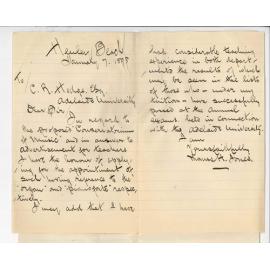 Henley Beach
January 7. 1898
To
C. R. Hodge, Esq
Adelaide University
Dear Sir,
In regard to
the proposed "Conservatorium
of Music" and in answer to
advertisement for teachers
I have the honour of apply-
ing for the appointment of
such having reference to the
"organ" and "pianoforte" respec-
tively.
I may add that I have
had considerable teaching
experience in both depart-
ments the results of which
may be seen in the lists
of those who - under my
tuition - have successfully
passed at the annual
exams. held in connection
with the Adelaide University.
I am
Yours faithfully
Thomas H. Jones